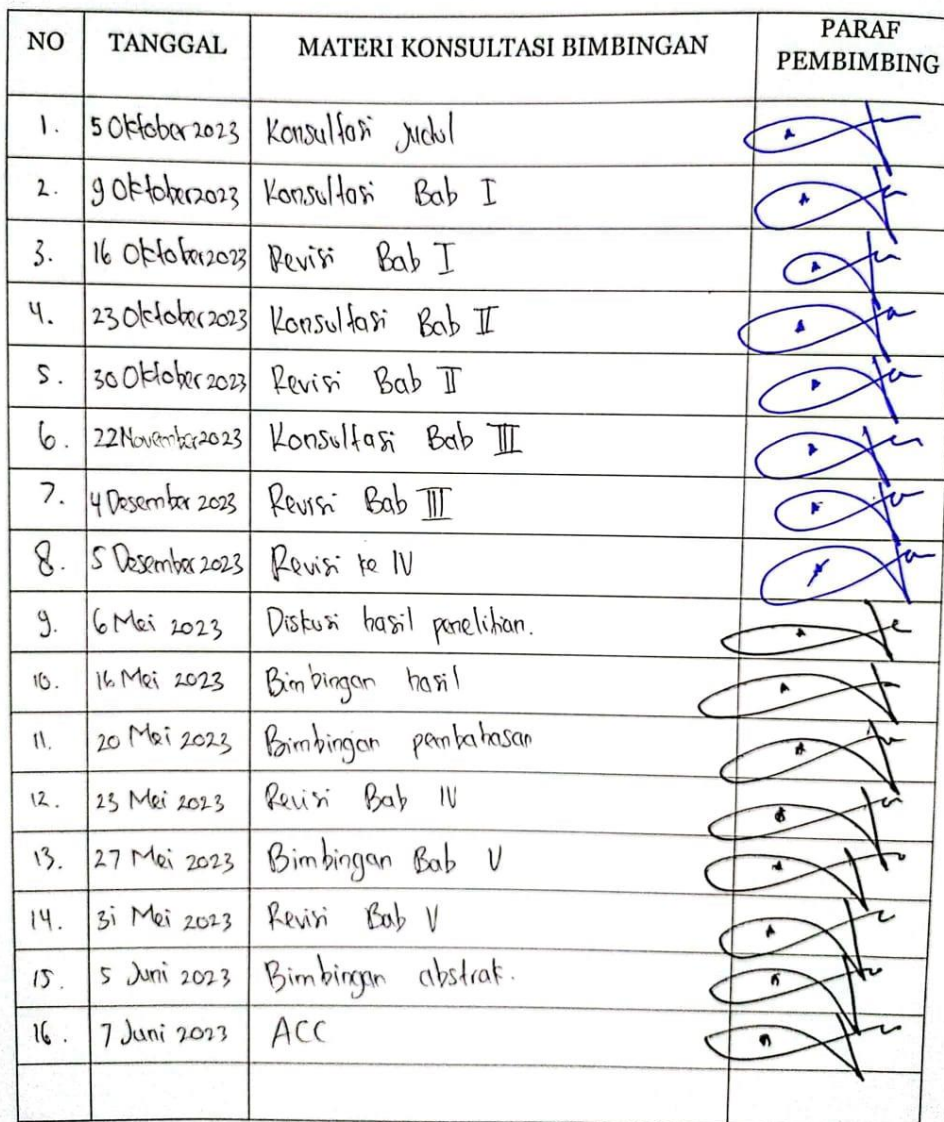 NO TANGGAL MATERI KONSULTASI BIMBINGAN PARAF PEMBIMBING
1. 5 Oktober 2023 Konsultasi judul
2. 9 Oktober 2023 Konsultasi Bab I
3. 16 Oktober 2023 Revisi Bab I
4. 23 Oktober 2023 Konsultasi Bab II
5. 30 Oktober 2023 Revisi Bab II
6. 22 November 2023 Konsultasi Bab III
7. 4 Desember 2023 Revisi Bab III
8. 5 Desember 2023 Revisi ke IV
9. 6 Mei 2023 Diskusi hasil penelitian.
10. 16 Mei 2023 Bimbingan hasil
11. 20 Mei 2023 Bimbingan pembahasan
12. 23 Mei 2023 Revisi Bab IV
13. 27 Mei 2023 Bimbingan Bab V
14. 31 Mei 2023 Revisi Bab V
15. 5 Juni 2023 Bimbingan abstrak.
16. 7 Juni 2023 ACC